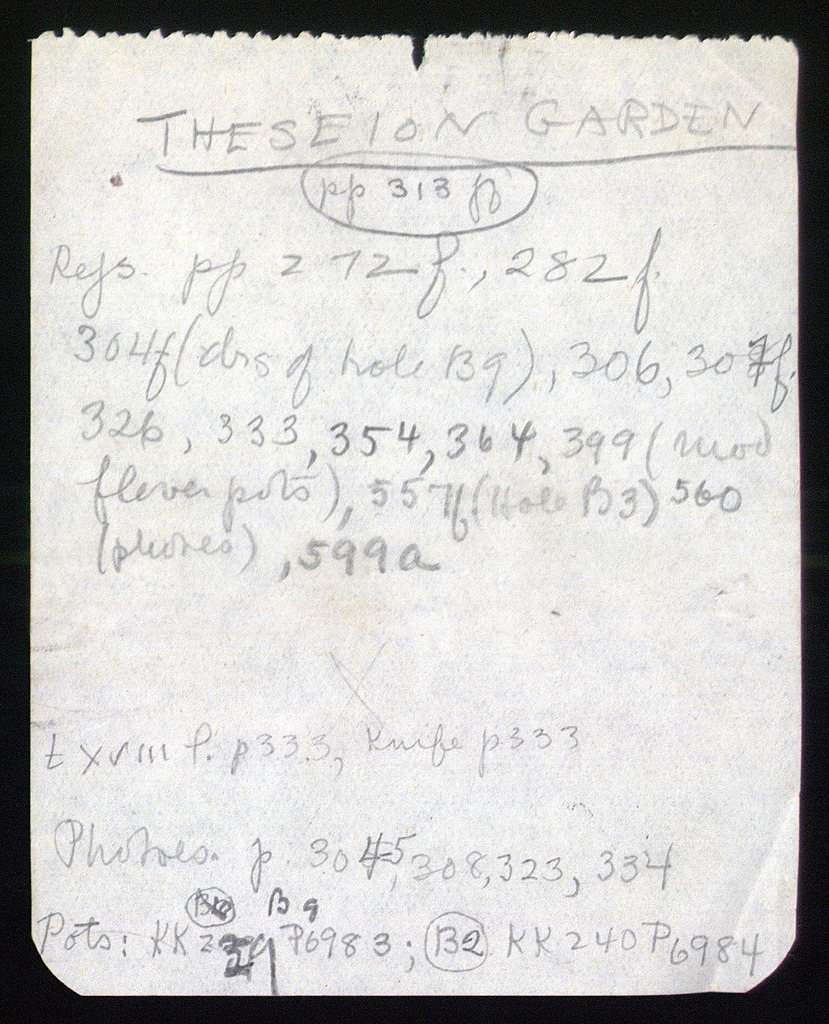 THESEION GARDEN
pp 313 ff
Refs. pp 272 f., 282 f.
304f (drs of hole B9), 306, 307f.
326, 333, 354, 364, 399 (mod
flower pots), 557f (Hole B3) 560
(photos), 599a
t XVIII f. p333, Knife p333
Photoes. p. 3045, 308, 323, 334
B9
Pots: KK 239 P6983; B2 KK 240 P6984